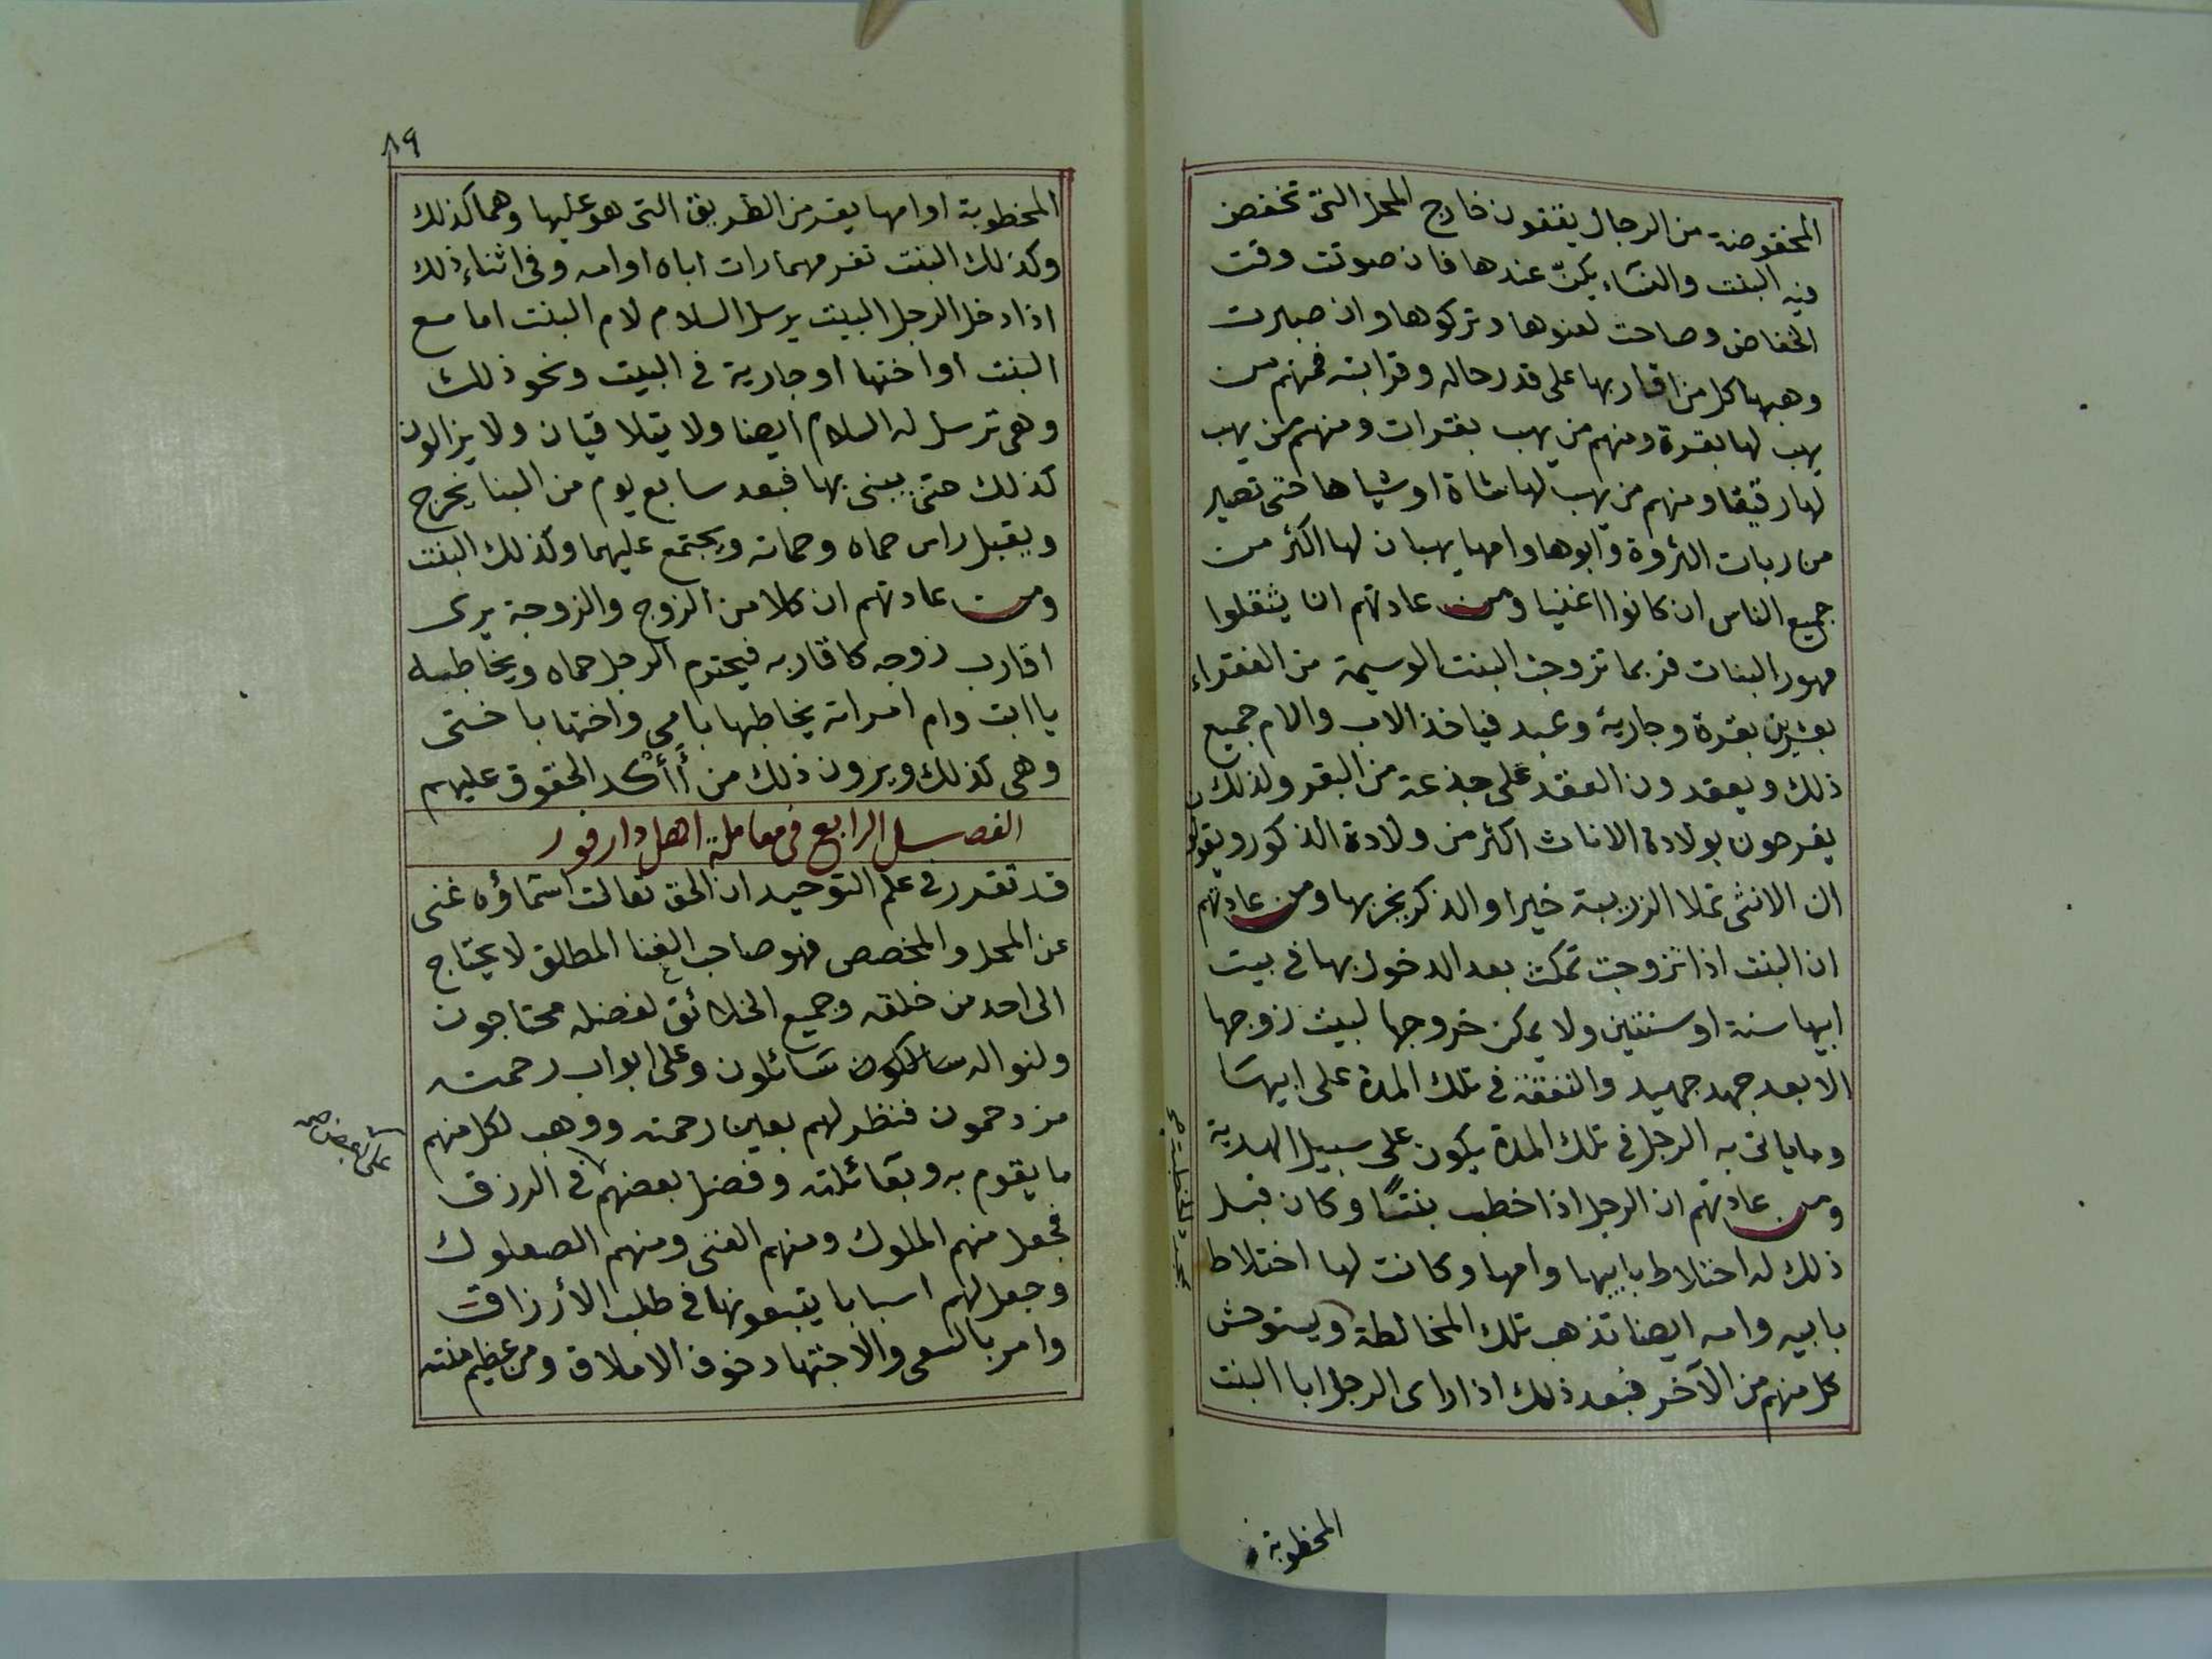 المخفوضة من الرجال يقفون خارج المحل التى تخفض
فيه البنت والنساء يكنّ عندها فان صوتت وقت
الخفاض وصاحت لعنوها وتركوها وان صبرت
وهبها كل من اقاربها على قدر حاله وقرابته فمنهم من
يهب لها بقرة ومنهم من يهب بقرات ومنهم من يهب
لها رقيقا ومنهم من يهب لها شاة او شياها حتى تصير
من ربات الثروة وابوها وامها يهبان لها اكثر من
جميع الناس ان كانوا اغنيا ومن عادتهم ان يثقلوا
مهور البنات فربما تزوجت البنت الوسيمة من الفقراء
بعشرين بقرة وجارية وعبد فياخذ الاب والام جميع
ذلك ويعقدون العقد على جذعة من البقر ولذلك
يفرحون بولادة الاناث اكثر من ولادة الذكور ويقولون
ان الانثى تملا الزريبة خيرا والذكر يخربها ومن عادتهم
ان البنت اذا تزوجت تمكث بعد الدخول بها فى بيت
ابيها سنة او سنتين ولا يمكن خروجها لبيت زوجها
الا بعد جهد جهيد والنفقة فى تلك المدة على ابيها
وماياتى به الرجل فى تلك المدة يكون على سبيل الهدية
ومن عادتهم ان الرجل اذا خطب بنتًا وكان قبل
ذلك له اختلاط بابيها وامها وكانت لها اختلاط
بابيه وامه ايضا تذهب تلك المخالطة ويستوحش
بمجرد الخطبة صح
كل منهم من الآخر فبعد ذلك اذا راى الرجل ابا البنت
المخطوبة
٨٩
المخطوبة او امها يفر من الطريق التى هو عليها وهما كذلك
وكذلك البنت تفر مهما رات اباه او امه وفى اثناء ذلك
اذا دخل الرجل البيت يرسل السلام لام البنت اما مع
البنت او اختها او جارية فى البيت ونحو ذلك
وهى ترسل له السلام ايضا ولا يتلاقيان ولا يزالون
كذلك حتى يبنى بها فبعد سابع يوم من البنا يخرج
ويقبل راس حماه وحماته ويجتمع عليهما وكذلك البنت
ومن عادتهم ان كلا من الزوج والزوجة يرى
اقارب زوجه كاقاربه فيحترم الرجل حماه ويخاطبه
يا ابت وام امراته يخاطبها بامى واختها باختى
وهى كذلك ويرون ذلك من أأكد الحقوق عليهم
الفصل الرابع فى معاملة اهل دارفور
قد تقرر فى علم التوحيد ان الحق تعالت اسماؤه غنى
عن المحل والمخصص فهو صاحب الغنا المطلق لا يحتاج
الى احد من خلقه وجميع الخلائق لفضله محتاجون
ولنواله سالكون سائلون وعلى ابواب رحمته
مزدحمون فنظر لهم بعين رحمته ووهب لكل منهم
ما يقوم به وبعائلته وفضل بعضهم فى الرزق
على بعض صح
فجعل منهم الملوك ومنهم الغنى ومنهم الصعلوك
وجعل لهم اسبابا يتبعونها فى طلب الأرزاق
وامر بالسعى والاجتهاد خوف الاملاق ومن عظيم منته